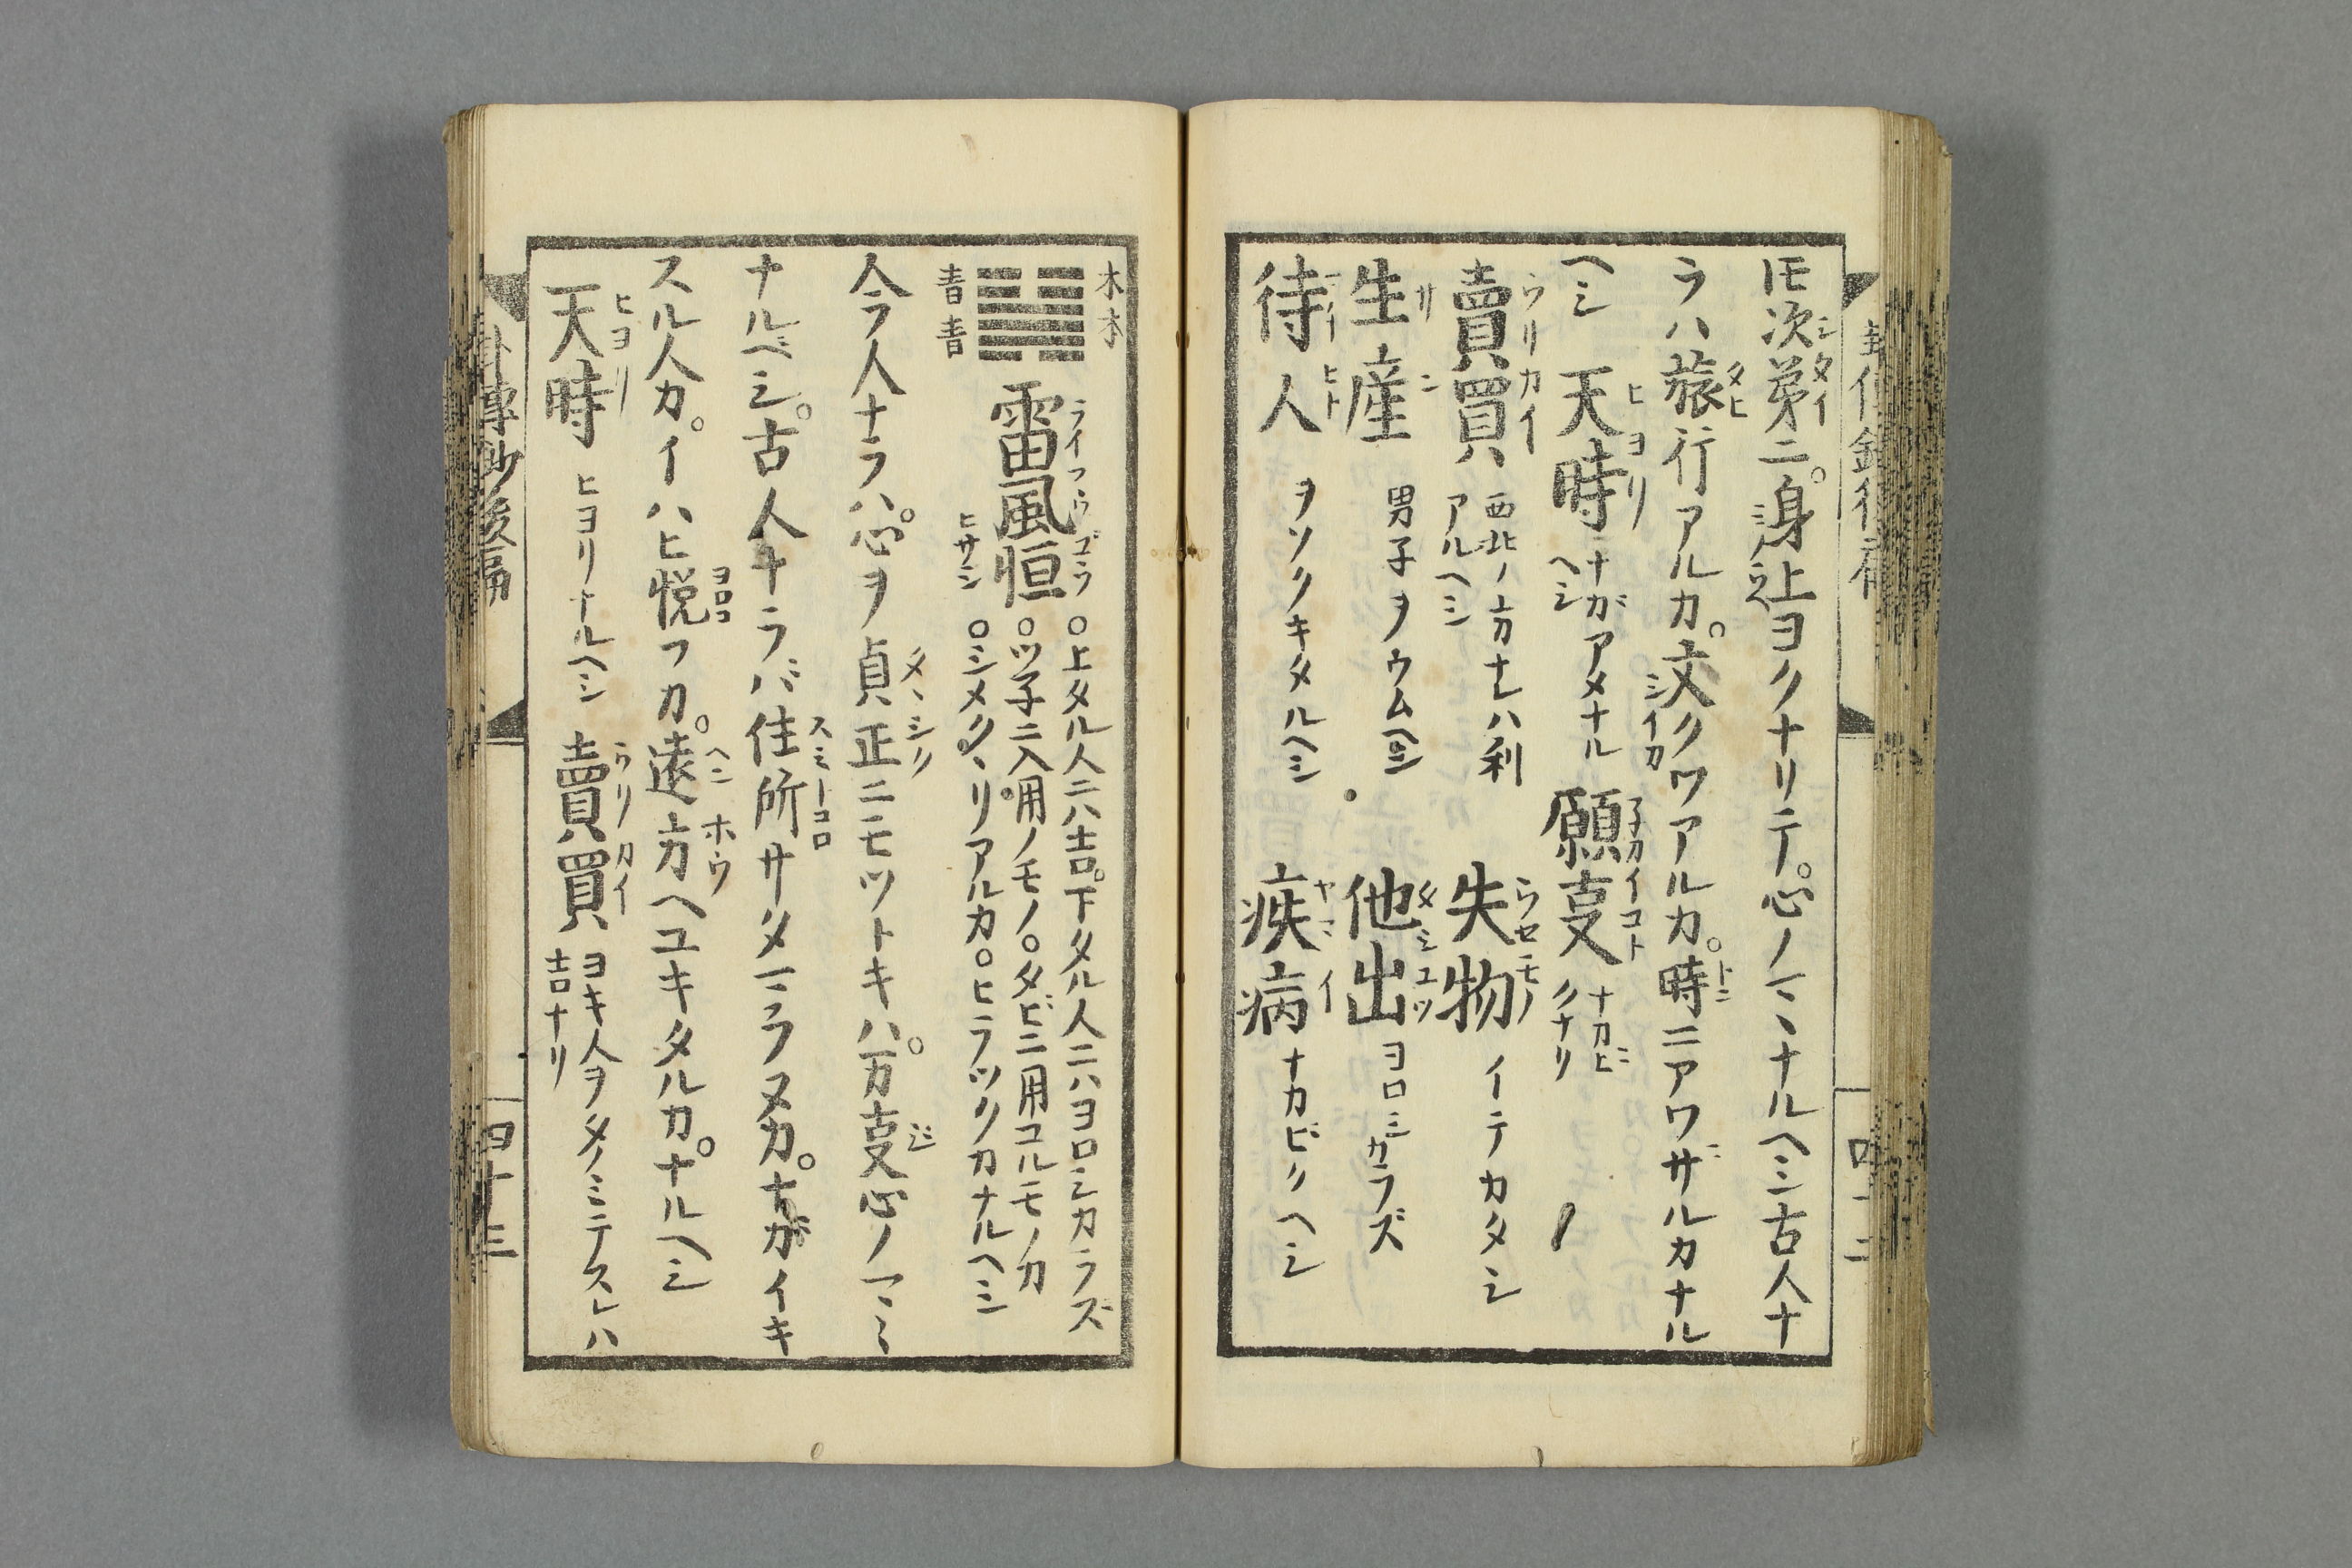 𪜈次第ニ。身上ヨクナリテ。心ノマヽナルヘシ古人ナ
ラハ旅行アルカ。文クワアルカ。時ニアワザルカナル
ヘシ 天時 ナガアメナル
ヘシ 願叓 ナカヒ
クナリ
賣買 西北ノ方ナレハ利
アルヘシ 失物 イテカタシ
生産 男子ヲウムヘシ 他出 ヨロシカラズ
待人 ヲソクキタルヘシ 疾病 ナカビクヘシ
木木
青青
雷風恒
ライフウゴウ
ヒサシ
○上タル人ニハ吉。下タル人ニハヨロシカラズ
○ツ子ニ入用ノモノ○タビニ用ユルモノカ
○シメクヽリアルカ○ヒラツクカナルヘシ
今フ人ナラハ。心ヲ貞正ニモツトキハ。万叓心ノマヽ
ナルヘシ。古人ナラバ住所サタマラヌカ。ナガイキ
スル人カ。イハヒ悦フカ。遠方ヘユキタルカ。ナルヘシ
天時 ヒヨリナルヘシ 賣買 ヨキ人ヲタノミテスレハ
吉ナリ
四十三